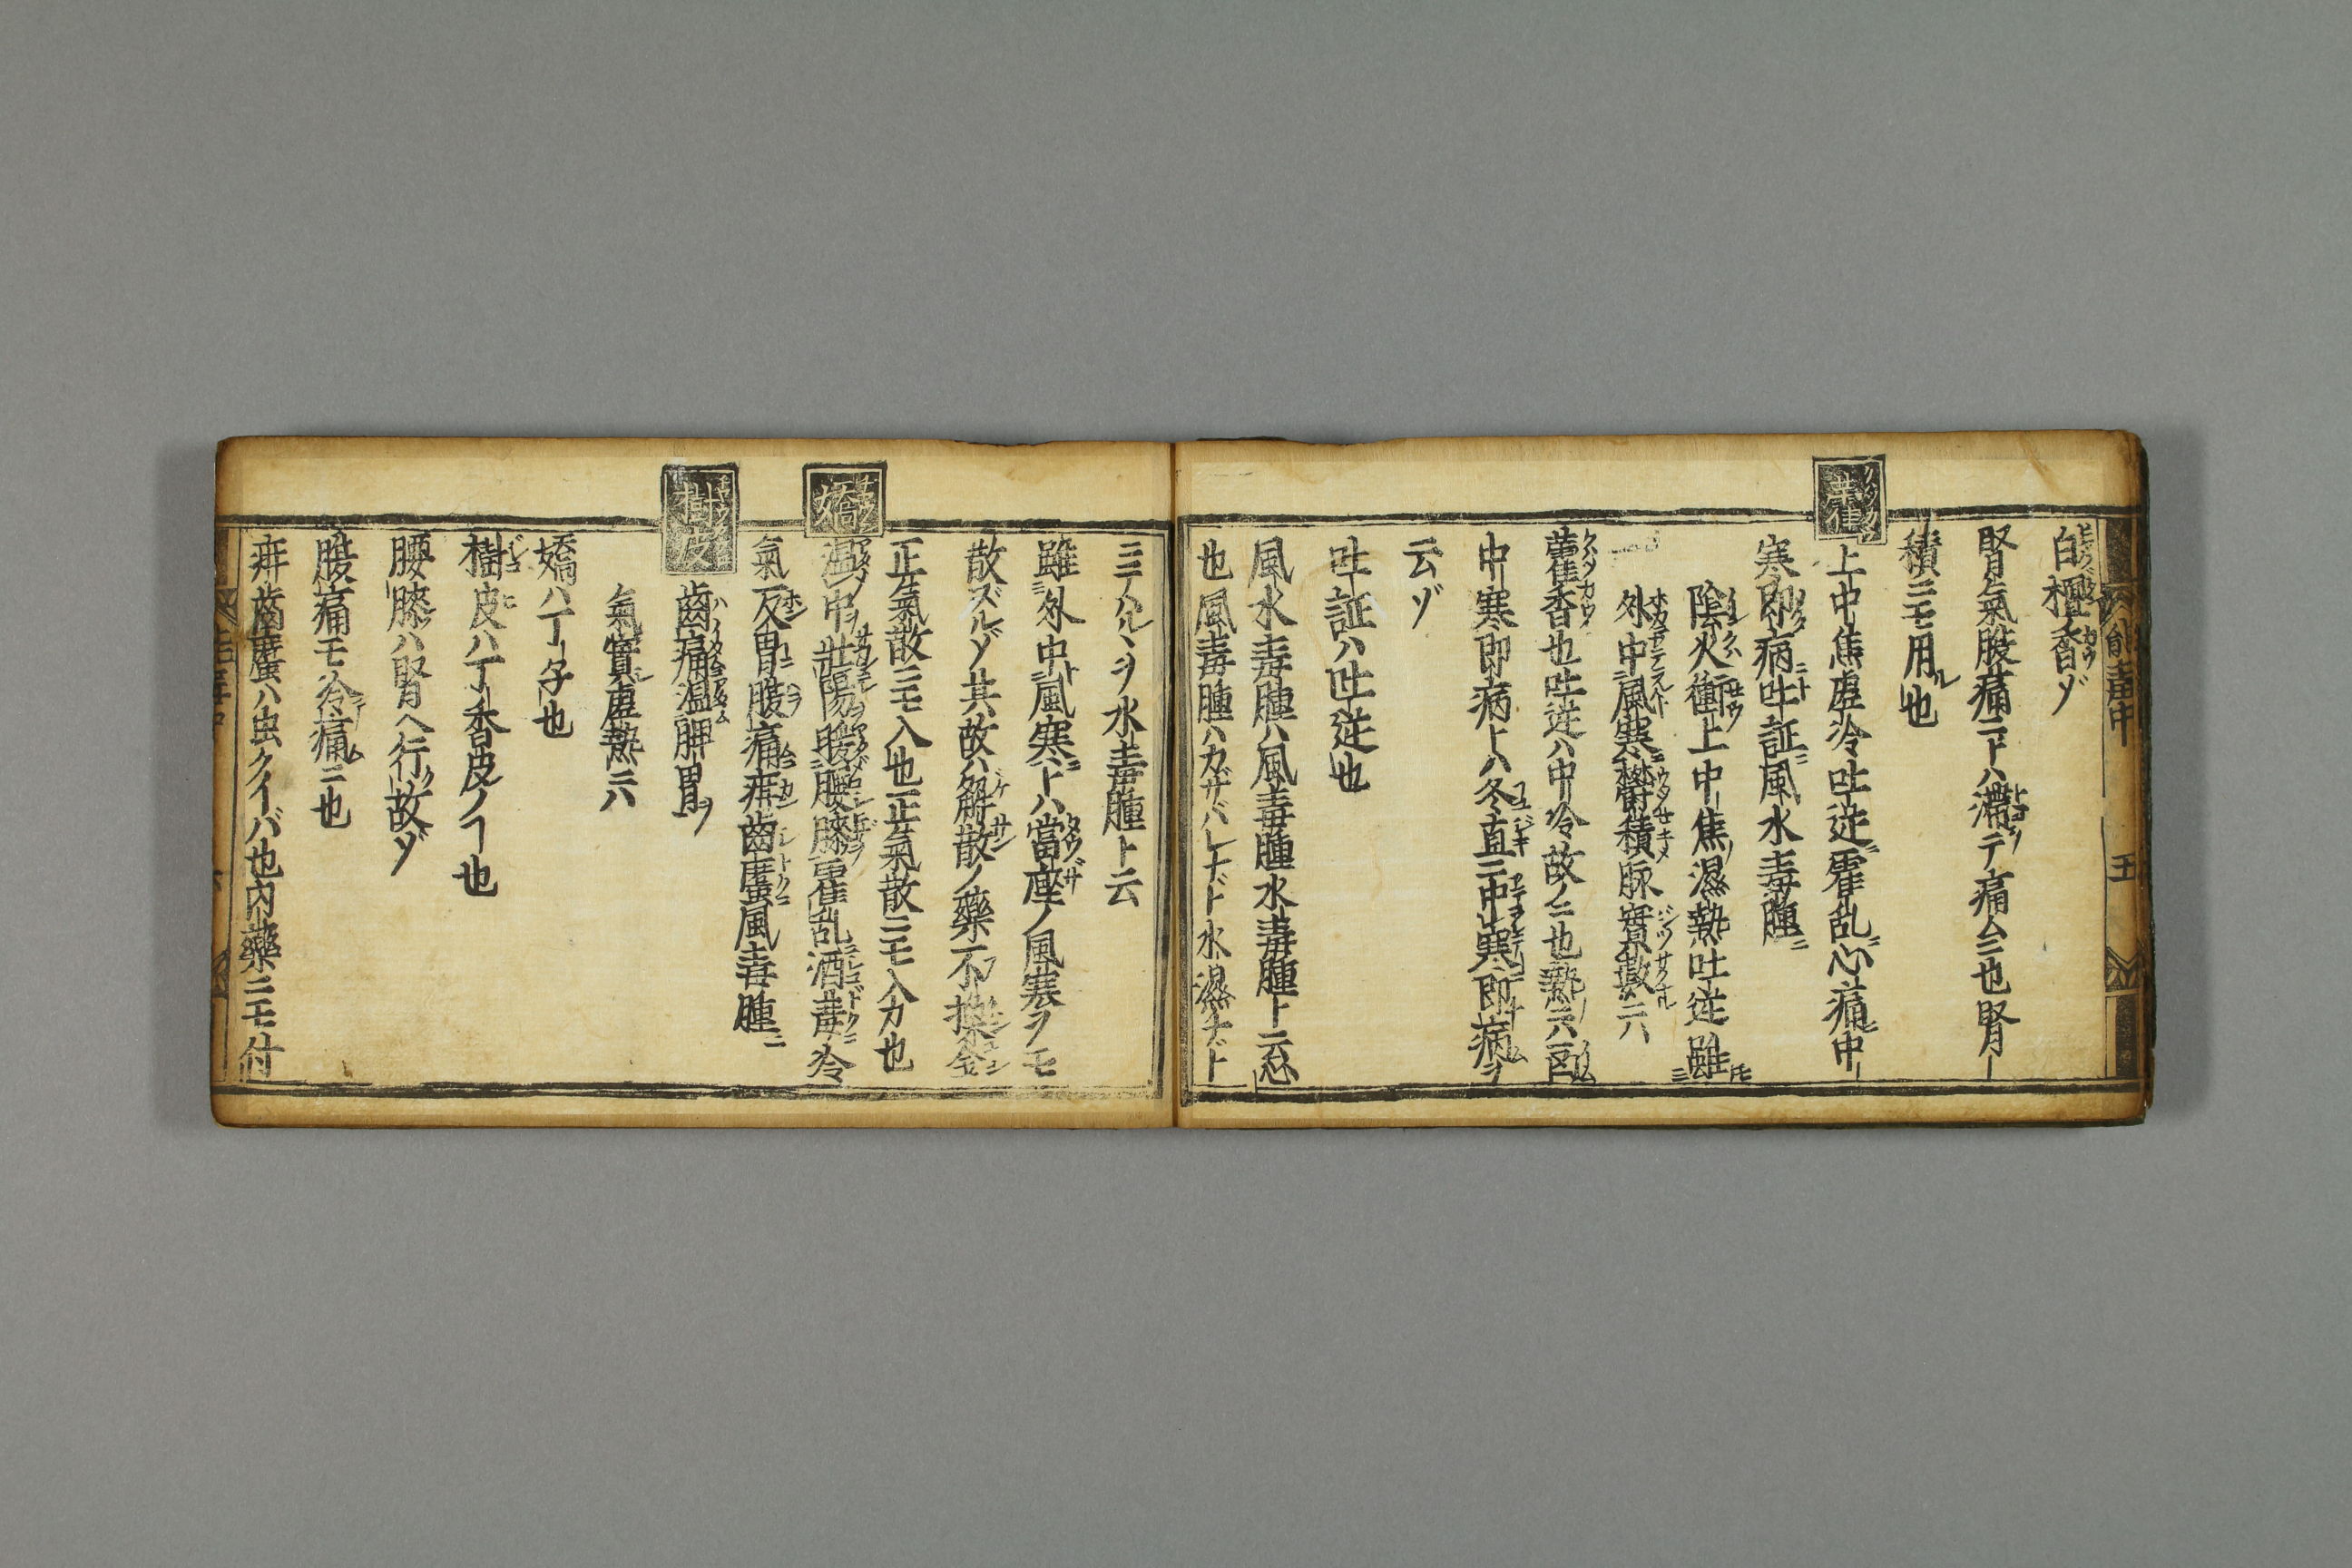 能毒中
五
白檀香ゾ
腎氣腹痛ーハ滞テ痛ムニ也腎ー
積ニモ用ル也
上中焦虚冷吐逆霍乱心痛中ー
寒即病吐証風水毒腫
陰火衝上中焦濕熱吐逆雖
外中風寒欝積脉實數ニハ
藿香也吐逆ハ中冷故ノニ也熱ニハ
中寒即病トハ冬直ニ中寒即病ヲ
云ゾ
吐証ハ吐逆也
風水毒腫ハ風毒腫水毒腫ト云心
也風毒腫ハカザバレナド水濕ナド
ニテハルヽヲ水毒腫ト云
雖外中風寒トハ當座ノ風寒ヲモ
散ズルゾ其故ハ解散ノ藥不換金
正氣散ニモ入也正氣散ニモ入カ也
嬌
温中壯陽暖腰膝霍乱酒毒冷
氣反胃腹痛疳齒䘌風毒腫
樹皮
齒痛温脾胃
氣實虚熱ニハ
嬌ハ丁ー子也
樹皮ハ丁ー香皮ノヿ也
腰膝ハ腎ヘ行故ゾ
腹痛モ冷痛ニ也
疳齒䘌ハ虫クイバ也内藥ニモ付